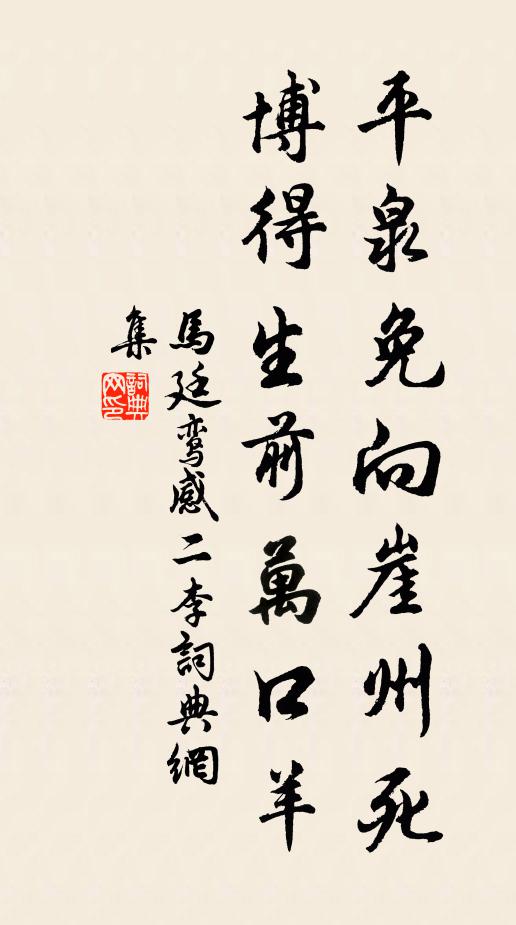 平泉免向崖州死
博得生前萬口羊
馬廷鸞感二李詞典網
集
詞典網印